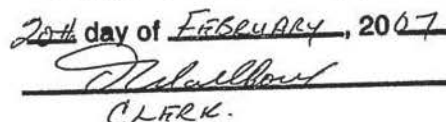 20th day of FEBRUARY, 2007
CLERK.